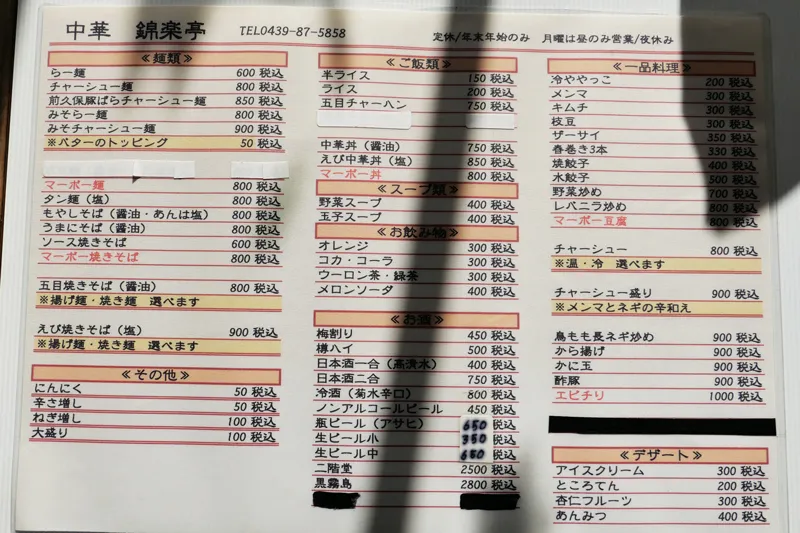 中華　錦楽亭　TEL0439-87-5858　定休/年末年始のみ　月曜は昼のみ営業/夜休み
≪麺類≫
らー麺 600 税込
チャーシュー麺 800 税込
前久保豚ばらチャーシュー麺 850 税込
みそらー麺 800 税込
みそチャーシュー麺 900 税込
※バターのトッピング 50 税込
マーボー麺 800 税込
タン麺（塩） 800 税込
もやしそば（醤油・あんは塩） 800 税込
うまにそば（醤油） 800 税込
ソース焼きそば 600 税込
マーボー焼きそば 800 税込
五目焼きそば（醤油） 800 税込
※揚げ麺・焼き麺　選べます
えび焼きそば（塩） 900 税込
※揚げ麺・焼き麺　選べます
≪その他≫
にんにく 50 税込
辛さ増し 50 税込
ねぎ増し 100 税込
大盛り 100 税込
≪ご飯類≫
半ライス 150 税込
ライス 200 税込
五目チャーハン 750 税込
中華丼（醤油） 750 税込
えび中華丼（塩） 850 税込
マーボー丼 800 税込
≪スープ類≫
野菜スープ 400 税込
玉子スープ 400 税込
≪お飲み物≫
オレンジ 300 税込
コカ・コーラ 300 税込
ウーロン茶・緑茶 300 税込
メロンソーダ 400 税込
≪お酒≫
梅割り 450 税込
樽ハイ 500 税込
日本酒一合（高清水） 400 税込
日本酒二合 750 税込
冷酒（菊水辛口） 800 税込
ノンアルコールビール 450 税込
瓶ビール（アサヒ） 650 税込
生ビール小 350 税込
生ビール中 650 税込
二階堂 2500 税込
黒霧島 2800 税込
≪一品料理≫
冷ややっこ 200 税込
メンマ 300 税込
キムチ 300 税込
枝豆 300 税込
ザーサイ 350 税込
春巻き3本 330 税込
焼餃子 400 税込
水餃子 500 税込
野菜炒め 700 税込
レバニラ炒め 800 税込
マーボー豆腐 800 税込
チャーシュー 800 税込
※温・冷　選べます
チャーシュー盛り 900 税込
※メンマとネギの辛和え
鳥もも長ネギ炒め 900 税込
から揚げ 900 税込
かに玉 900 税込
酢豚 900 税込
エビチリ 1000 税込
≪デザート≫
アイスクリーム 300 税込
ところてん 200 税込
杏仁フルーツ 300 税込
あんみつ 400 税込